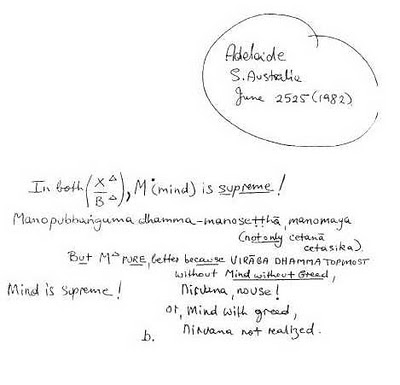 Adelaide
S. Australia
June 2525 (1982)
In both (X△/B△), M (mind) is supreme!
Manopubhanguma dhamma-manosetthā, manomaya
(not only cetanā
cetasika).
But M△ PURE, better because VIRĀGA DHAMMA TOPMOST
without Mind without Greed,
Mind is Supreme! Nirvana, nouse!
or, Mind with greed,
Nirvana not realized.
b.